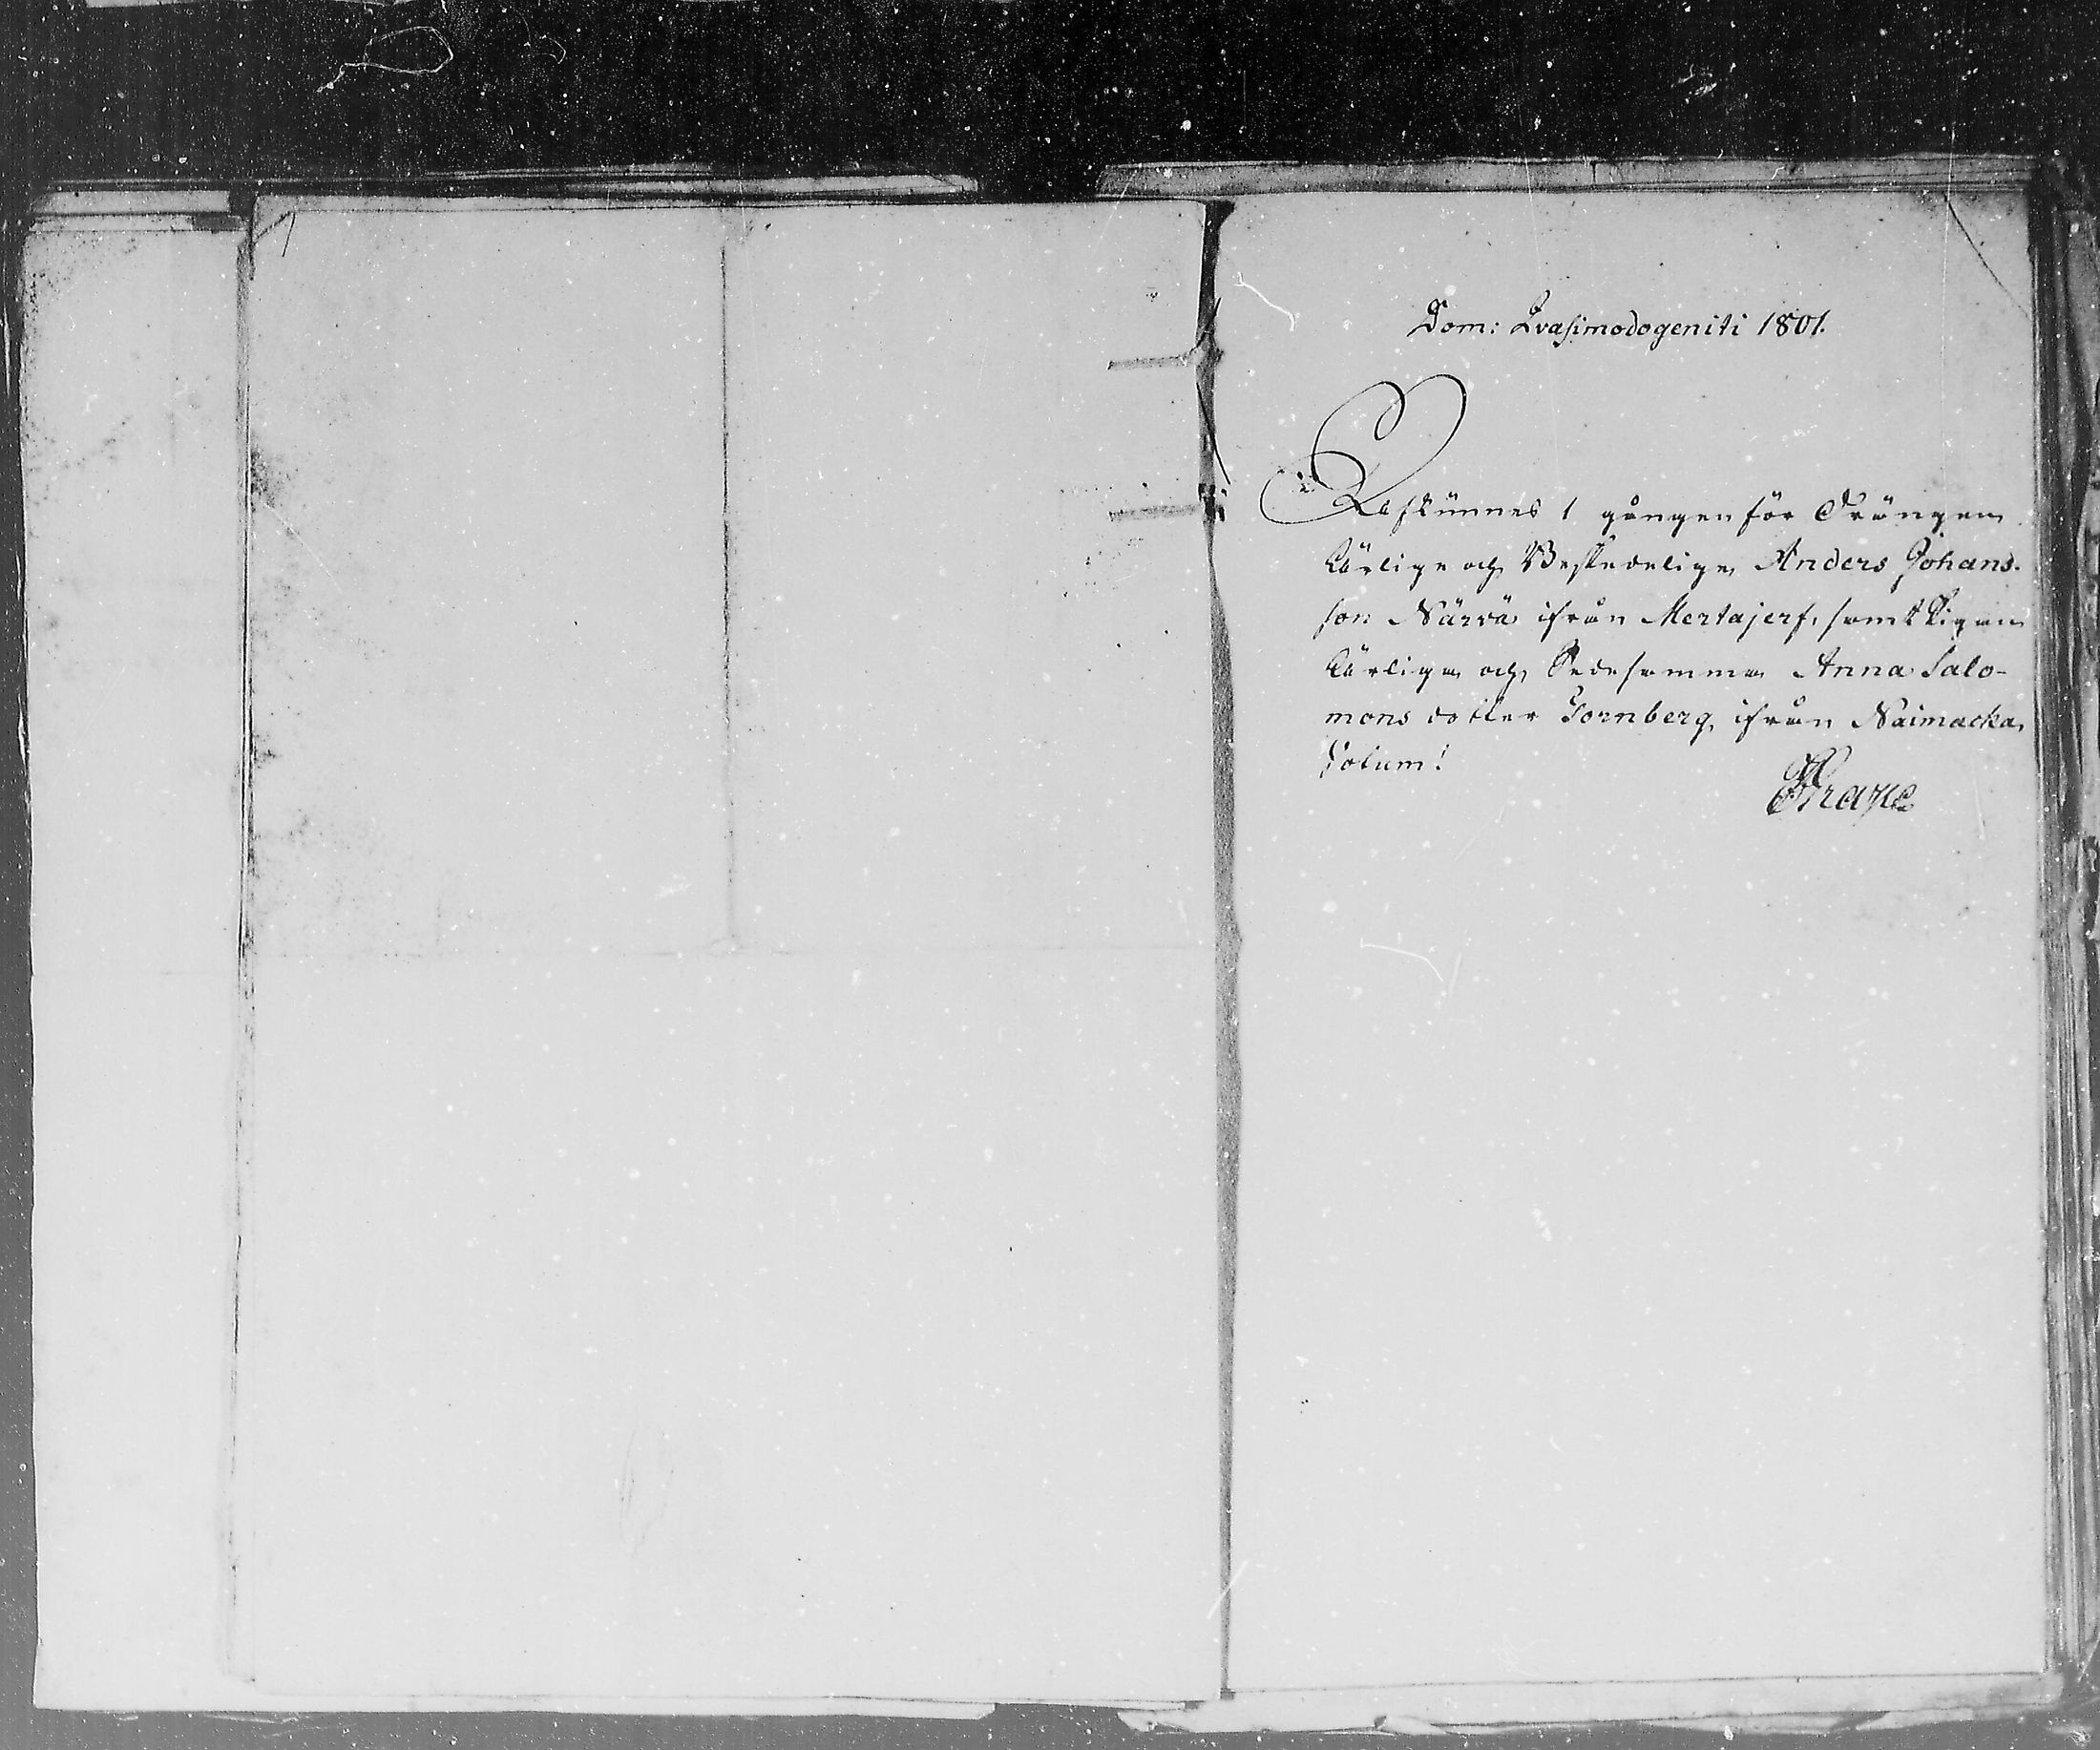 Dom: Qvasimodogeniti 1801.
Afkünnes 1 gången för Drängen
Ärlige och Beskedelige Anders Johans-
son Närvä ifrån Mertajerf, samt Pigan
Ärliga och Sedesamma Anna Salo-
mons dotter Fornberg ifrån Naimacka,
Votum!